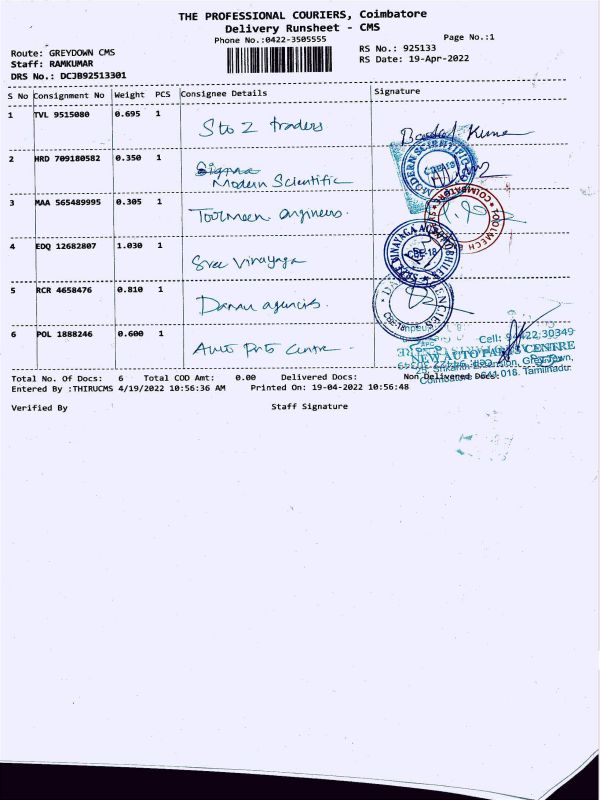 THE PROFESSIONAL COURIERS, Coimbatore
Delivery Runsheet - CMS
Phone No.:0422-3505555
Page No.:1
Route: GREYDOWN CMS
RS No.: 925133
Staff: RAMKUMAR
RS Date: 19-Apr-2022
DRS No.: DCJB92513301
S No Consignment No Weight PCS Consignee Details Signature
1 TVL 9515080 0.695 1 S to Z traders
2 HRD 709180582 0.350 1 Modern Scientific
3 MAA 565489995 0.305 1
4 EDQ 12682807 1.030 1 Sree Vinayaga
5 RCR 4658476 0.810 1 agencies
6 POL 1888246 0.600 1 Auto Prts Centre
MODERN SCIENTIFIC
COIMBATORE
TOOLMECH
SREE VINAYAGA AUTOMOBILES
CBE-18
CBE-18
Cell: 30349
NEW AUTO PARTS CENTRE
Coimbatore - 641 018. Tamilnadu.
Total No. Of Docs: 6 Total COD Amt: 0.00 Delivered Docs: Non Delivered Docs:
Entered By :THIRUCMS 4/19/2022 10:56:36 AM Printed On: 19-04-2022 10:56:48
Verified By Staff Signature